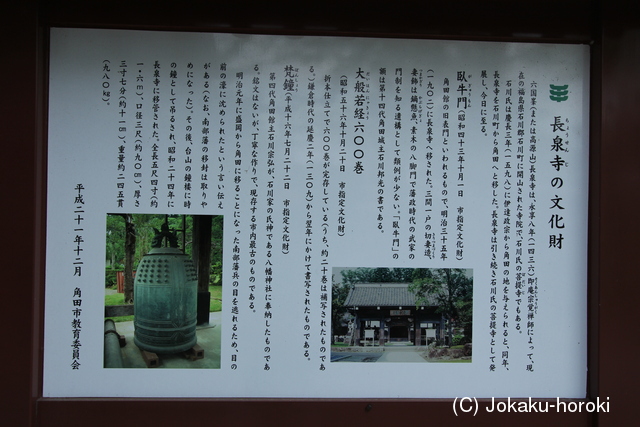 長泉寺の文化財
ちょうせんじ
六国峯(または高源山)長泉寺は、永享八年(一四三六)即庵宗覚禅師によって、現
在の福島県石川郡石川町に開山された寺院で、石川氏の菩提寺でもある。
石川氏は慶長三年(一五九八)に伊達政宗から角田の地を与えられると、同年、
長泉寺を石川町から角田へと移した。長泉寺は引き続き石川氏の菩提寺として発
展し、今日に至る。
臥牛門(昭和四十三年十月一日 市指定文化財)
角田館の旧表門といわれるもので、明治三十五年
(一九〇二)に長泉寺へ移された。三間一戸の切妻造、
妻飾は鏑懸魚、素木の八脚門で藩政時代の武家の
門制を知る遺構として類例が少ない。「臥牛門」の
額は第十四代角田城主石川邦光の書である。
大般若経六〇〇巻
(昭和五十六年十月二十日 市指定文化財)
折本仕立てで六〇〇巻が完存している(うち、約二十巻は補写されたものであ
る。)鎌倉時代の延慶二年(一三〇九)から翌年にかけて書写されたものである。
梵鐘(平成十六年七月二十二日 市指定文化財)
第四代角田館主石川宗弘が、石川家の氏神である八幡神社に奉納したものであ
る。銘文はないが、丁寧な作りで、現存する市内最古のものである。
明治元年に盛岡から角田に移ることになった南部藩兵の目を逃れるため、目の
前の濠に沈められたという言い伝え
がある(なお、南部藩の移封は取りや
めになった)。その後、台山の鐘楼に時
の鐘として吊るされ、昭和二十四年に
長泉寺に移管された。全長五尺四寸(約
一・六m)、口径三尺(約九〇㎝)、厚さ
三寸七分(約十一㎝)、重量約二四五貫
(九八〇㎏)。
平成二十一年十二月 角田市教育委員会
(C) Jokaku-horoki